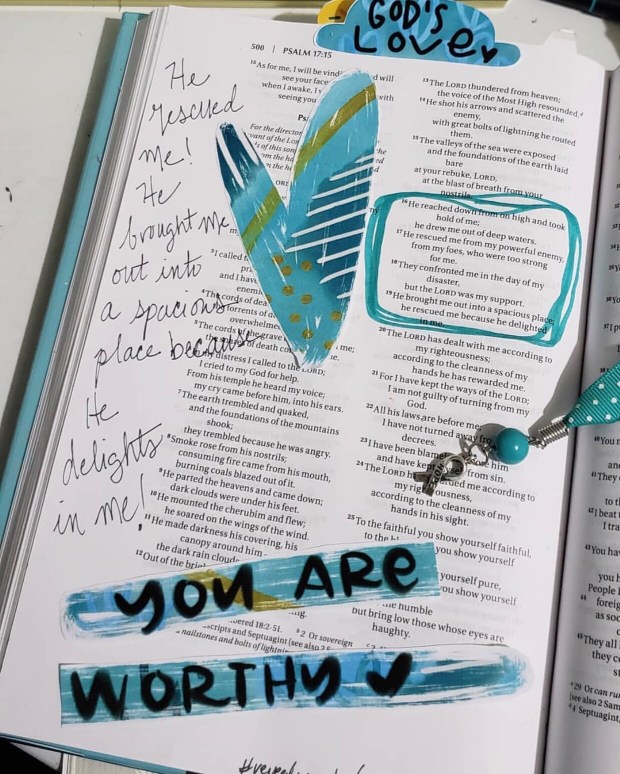 GOD'S
LOVE
500 | PSALM 17:15
He
rescued
me!
He
brought me
out into
a spacious
place because
He
delights
in me!
15 As for me, I will be
see your face
when I awake, I
with
seeing you
For the director
3 I called
and I have
enem
4 The cords of
torrents of
overwhelme
5 The cords of the grave
of death
me.
distress I called to the LORD;
I cried to my God for help.
From his temple he heard my voice;
my cry came before him, into his ears.
7 The earth trembled and quaked,
and the foundations of the mountains
shook;
they trembled because he was angry.
8 Smoke rose from his nostrils;
consuming fire came from his mouth,
burning coals blazed out of it.
9 He parted the heavens and came down;
dark clouds were under his feet.
10 He mounted the cherubim and flew;
he soared on the wings of the wind.
11 He made darkness his covering, his
canopy around him –
the dark rain clouds
12 Out of the
13 The LORD thundered from heaven;
the voice of the Most High resounded.
14 He shot his arrows and scattered the
enemy,
with great bolts of lightning he routed
them.
15 The valleys of the sea were exposed
and the foundations of the earth laid
bare
at your rebuke, LORD,
at the blast of breath from your
nostrils.
16 He reached down from on high and took
hold of me;
he drew me out of deep waters.
17 He rescued me from my powerful enemy,
from my foes, who were too strong
for me.
18 They confronted me in the day of my
disaster,
but the LORD was my support.
19 He brought me out into a spacious place;
he rescued me because he delighted
in me.
20 The LORD has dealt with me according to
my righteousness;
according to the cleanness of my
hands he has rewarded me.
21 For I have kept the ways of the LORD;
I am not guilty of turning from my
God.
22 All his laws are before me;
I have not turned away from
decrees.
23 I have been
him
and have kept
from sin.
24 The LORD
me according to
my
according to the cleanness of my
hands in his sight.
25 To the faithful you show yourself faithful,
to the
you show yourself
yourself pure,
you show yourself
the humble
but bring low those whose eyes are
haughty.
YOU ARE
WORTHY
18:2-51.
2 Or sovereign
and Septuagint (see also 2 S
hailstones and bolts of